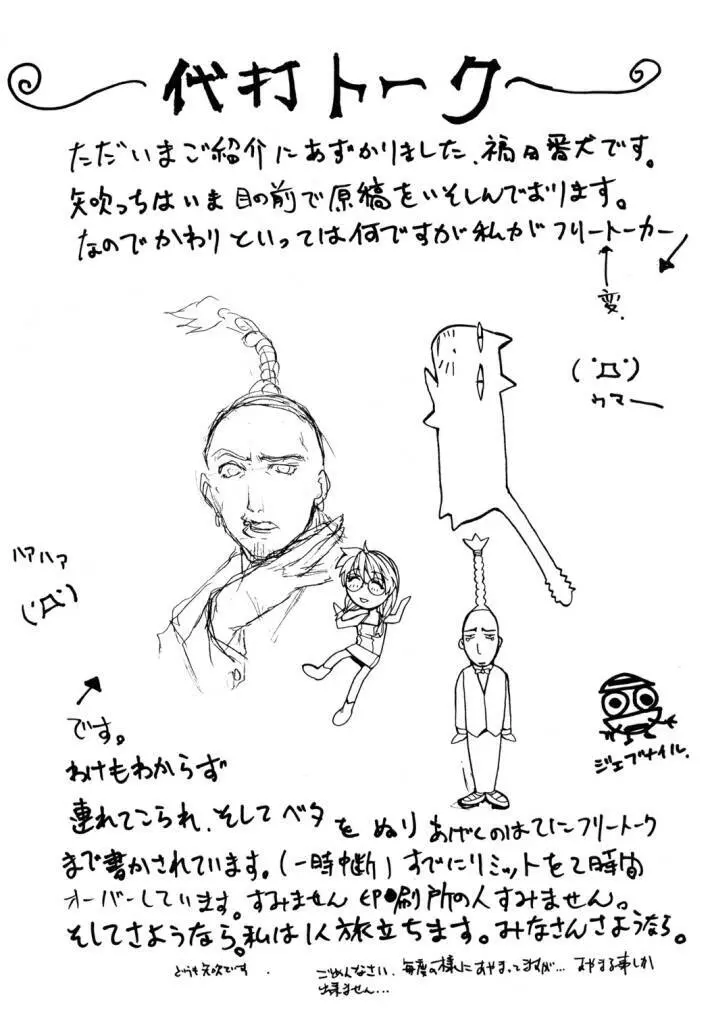 代打トーク
ただいまご紹介にあずかりました、福田番犬です。
矢吹っちはいま目の前で原稿をいそしんでおります。
なのでかわりといっては何ですが私がフリートーカー
変.
(゚Д゚)
ウマー
ハァハァ
(゚Д゚)
ジェブナイル.
です。
わけもわからず
連れてこられ、そしてベタをぬりあげくのはてにフリートーク
まで書かされています。(一時中断)すでにリミットを2時間
オーバーしています。すみません印刷所の人すみません。
そしてさようなら。私は1人旅立ちます。みなさんさようなら。
どうも矢吹です.
ごめんなさい、毎度の様にあやまってますが…あやまる事しか
出来ません…